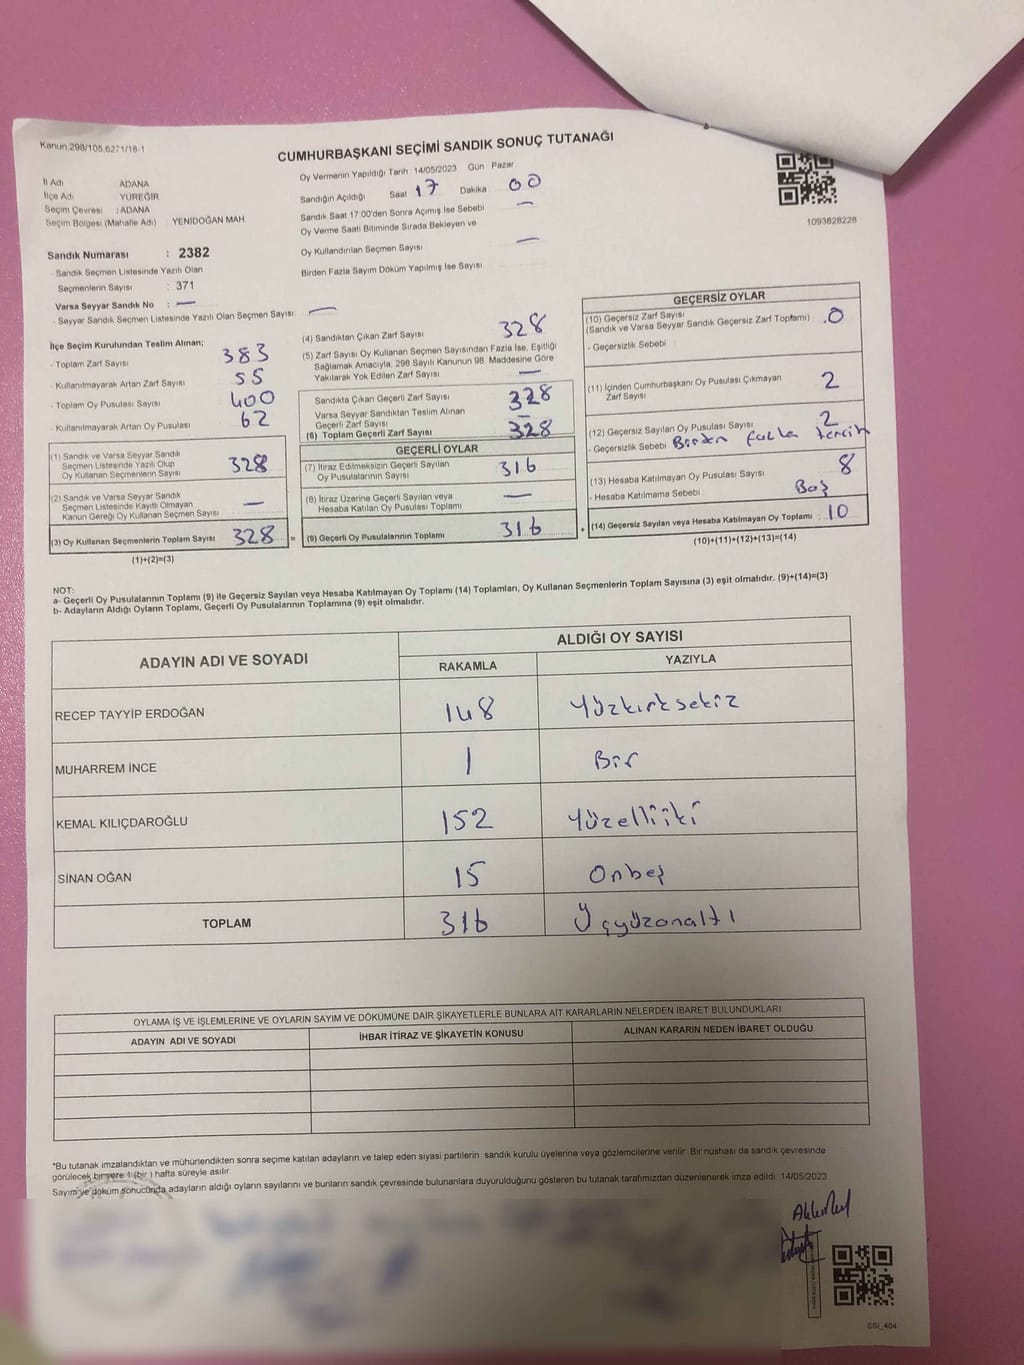 Kanun 298/105,6271/18-1
CUMHURBAŞKANI SEÇİMİ SANDIK SONUÇ TUTANAĞI
İl Adı ADANA
İlçe Adı YÜREĞİR
Seçim Çevresi : ADANA
Seçim Bölgesi (Mahalle Adı) YENİDOĞAN MAH.
Oy Vermenin Yapıldığı Tarih 14/05/2023 Gün Pazar
Sandığın Açıldığı Saat 17 Dakika 00
Sandık Saat 17:00'den Sonra Açımış İse Sebebi —
Oy Verme Saati Bitiminde Sırada Bekleyen ve
Oy Kullandırılan Seçmen Sayısı —
Birden Fazla Sayım Döküm Yapılmış İse Sayısı
1093828228
Sandık Numarası : 2382
- Sandık Seçmen Listesinde Yazılı Olan
Seçmenlerin Sayısı : 371
Varsa Seyyar Sandık No : —
- Seyyar Sandık Seçmen Listesinde Yazılı Olan Seçmen Sayısı —
İlçe Seçim Kurulundan Teslim Alınan;
- Toplam Zarf Sayısı 383
- Kullanılmayarak Artan Zarf Sayısı 55
- Toplam Oy Pusulası Sayısı 400
- Kullanılmayarak Artan Oy Pusulası 62
(1) Sandık ve Varsa Seyyar Sandık
Seçmen Listesinde Yazılı Olup
Oy Kullanan Seçmenlerin Sayısı 328
(2) Sandık ve Varsa Seyyar Sandık
Seçmen Listesinde Kayıtlı Olmayan
Kanun Gereği Oy Kullanan Seçmen Sayısı —
(3) Oy Kullanan Seçmenlerin Toplam Sayısı 328 =
(1)+(2)=(3)
(4) Sandıktan Çıkan Zarf Sayısı 328
(5) Zarf Sayısı Oy Kullanan Seçmen Sayısından Fazla İse, Eşitliği
Sağlamak Amacıyla, 298 Sayılı Kanunun 98. Maddesine Göre
Yakılarak Yok Edilen Zarf Sayısı —
Sandıkta Çıkan Geçerli Zarf Sayısı 328
Varsa Seyyar Sandıktan Teslim Alınan
Geçerli Zarf Sayısı —
(6) Toplam Geçerli Zarf Sayısı 328
GEÇERLİ OYLAR
(7) İtiraz Edilmeksizin Geçerli Sayılan
Oy Pusulalarının Sayısı 316
(8) İtiraz Üzerine Geçerli Sayılan veya
Hesaba Katılan Oy Pusulası Toplamı —
(9) Geçerli Oy Pusulalarının Toplamı 316 +
GEÇERSİZ OYLAR
(10) Geçersiz Zarf Sayısı
(Sandık ve Varsa Seyyar Sandık Geçersiz Zarf Toplamı) : 0
- Geçersizlik Sebebi
(11) İçinden Cumhurbaşkanı Oy Pusulası Çıkmayan
Zarf Sayısı 2
(12) Geçersiz Sayılan Oy Pusulası Sayısı 2
- Geçersizlik Sebebi Birden fazla tercih
(13) Hesaba Katılmayan Oy Pusulası Sayısı 8
- Hesaba Katılmama Sebebi : Boş
(14) Geçersiz Sayılan veya Hesaba Katılmayan Oy Toplamı : 10
(10)+(11)+(12)+(13)=(14)
NOT:
a- Geçerli Oy Pusulalarının Toplamı (9) ile Geçersiz Sayılan veya Hesaba Katılmayan Oy Toplamı (14) Toplamları, Oy Kullanan Seçmenlerin Toplam Sayısına (3) eşit olmalıdır. (9)+(14)=(3)
b- Adayların Aldığı Oyların Toplamı, Geçerli Oy Pusulalarının Toplamına (9) eşit olmalıdır.
ADAYIN ADI VE SOYADI ALDIĞI OY SAYISI
RAKAMLA YAZIYLA
RECEP TAYYİP ERDOĞAN 148 Yüzkırksekiz
MUHARREM İNCE 1 Bir
KEMAL KILIÇDAROĞLU 152 Yüzelliiki
SİNAN OĞAN 15 Onbeş
TOPLAM 316 Üçyüzonaltı
OYLAMA İŞ VE İŞLEMLERİNE VE OYLARIN SAYIM VE DÖKÜMÜNE DAİR ŞİKAYETLERLE BUNLARA AİT KARARLARIN NELERDEN İBARET BULUNDUKLARI
ADAYIN ADI VE SOYADI İHBAR İTİRAZ VE ŞİKAYETİN KONUSU ALINAN KARARIN NEDEN İBARET OLDUĞU
*Bu tutanak imzalandıktan ve mühürlendikten sonra seçime katılan adayların ve talep eden siyasi partilerin sandık kurulu üyelerine veya gözlemcilerine verilir. Bir nüshası da sandık çevresinde
görülecek bir yere 1 (bir) hafta süreyle asılır.
Sayım ve döküm sonucunda adayların aldığı oyların sayılarını ve bunların sandık çevresinde bulunanlara duyurulduğunu gösteren bu tutanak tarafımızdan düzenlenerek imza edildi. 14/05/2023
SSI_404